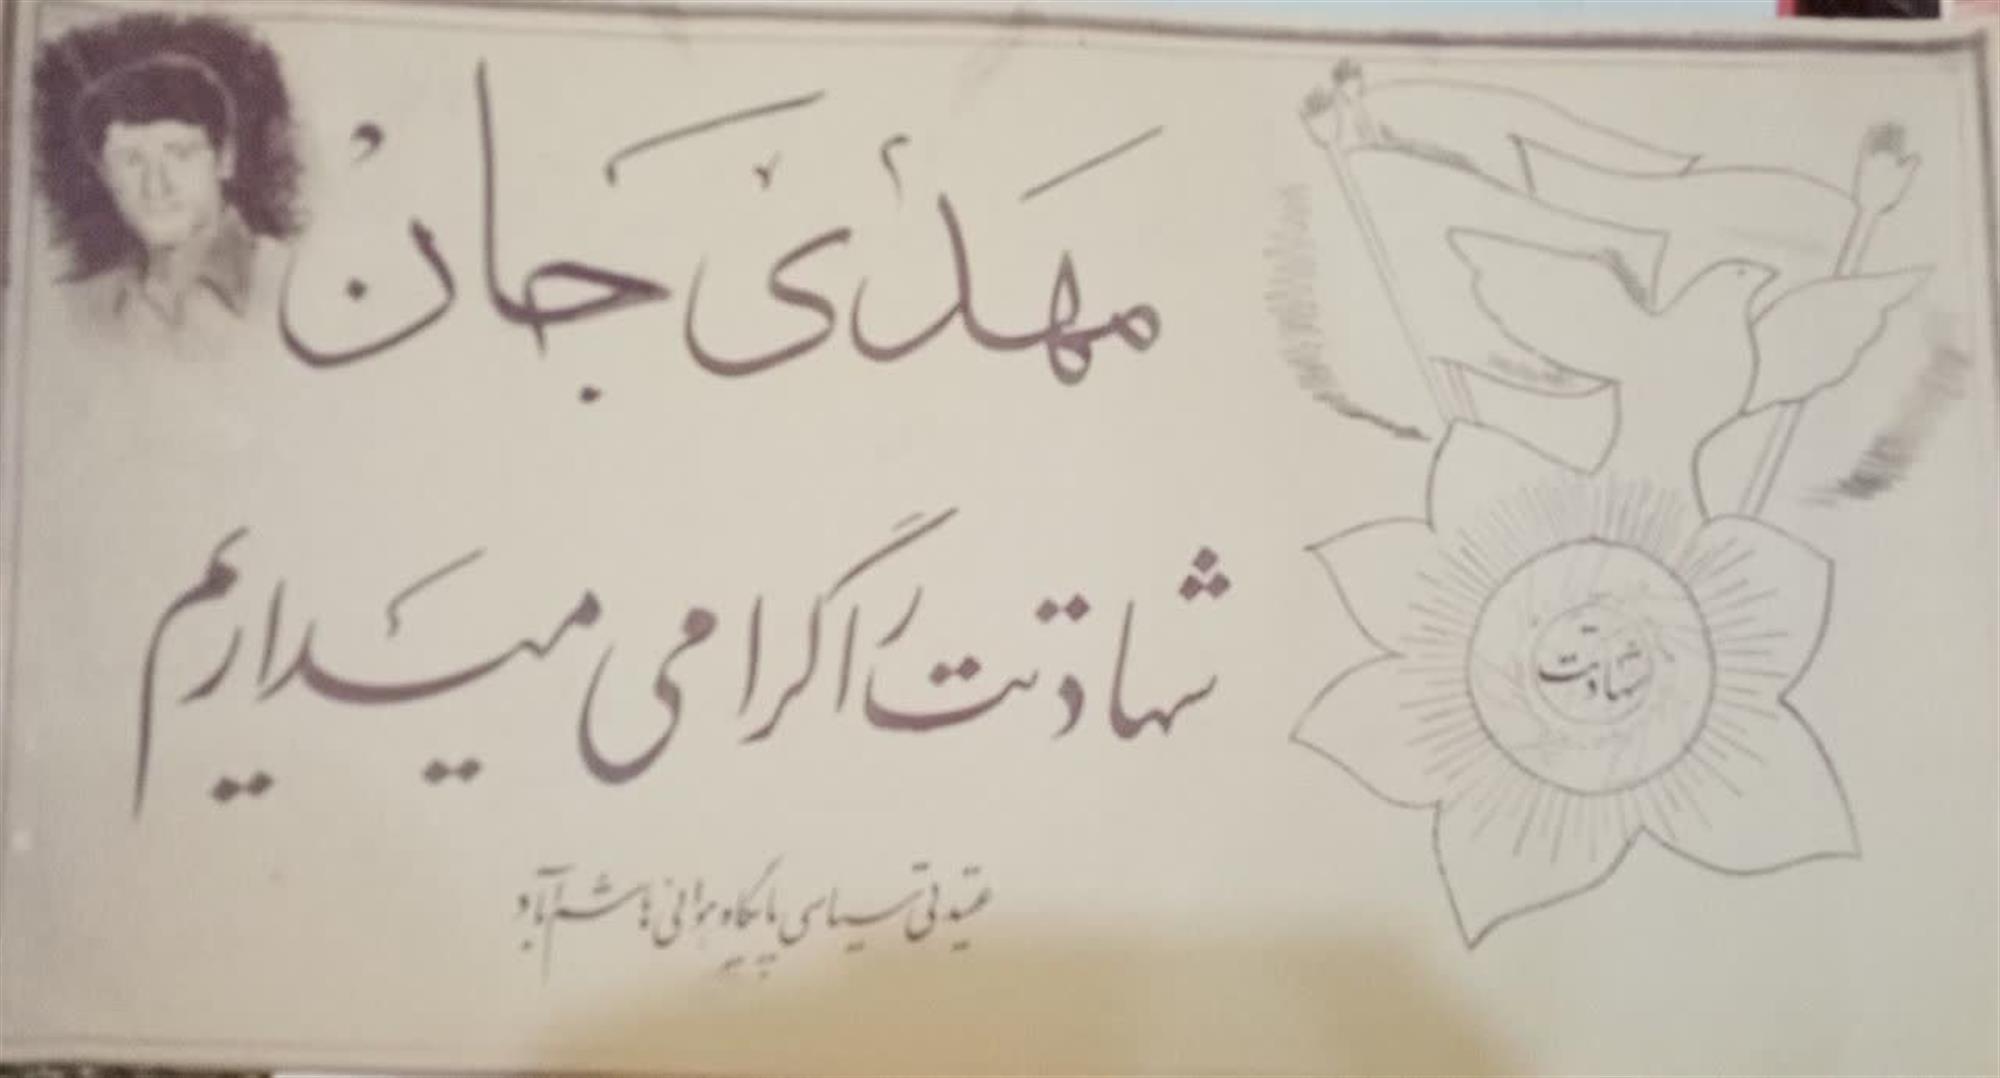 مهدی جان
شهادتت را گرامی میداریم
عقیدتی سیاسی پایگاه هوائی هاشم آباد
شهادت